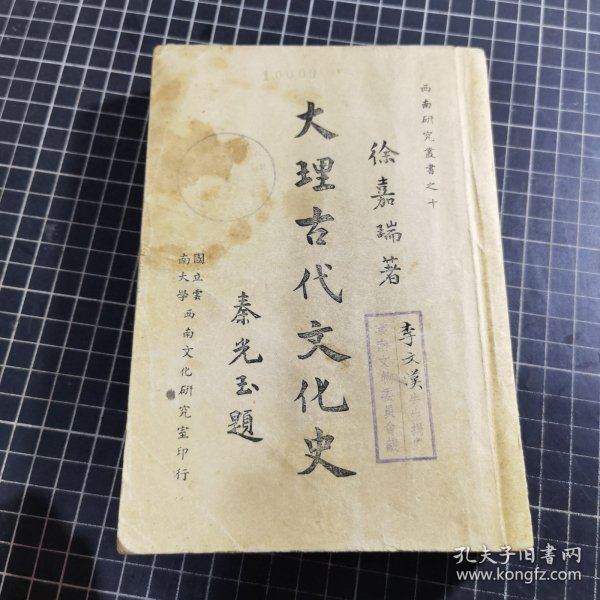 10009
西南研究叢書之十
徐嘉瑞著
大理古代文化史
秦光玉題
國立雲南大學西南文化研究室印行
李文漢
孔夫子旧書网
www.kongfz.com